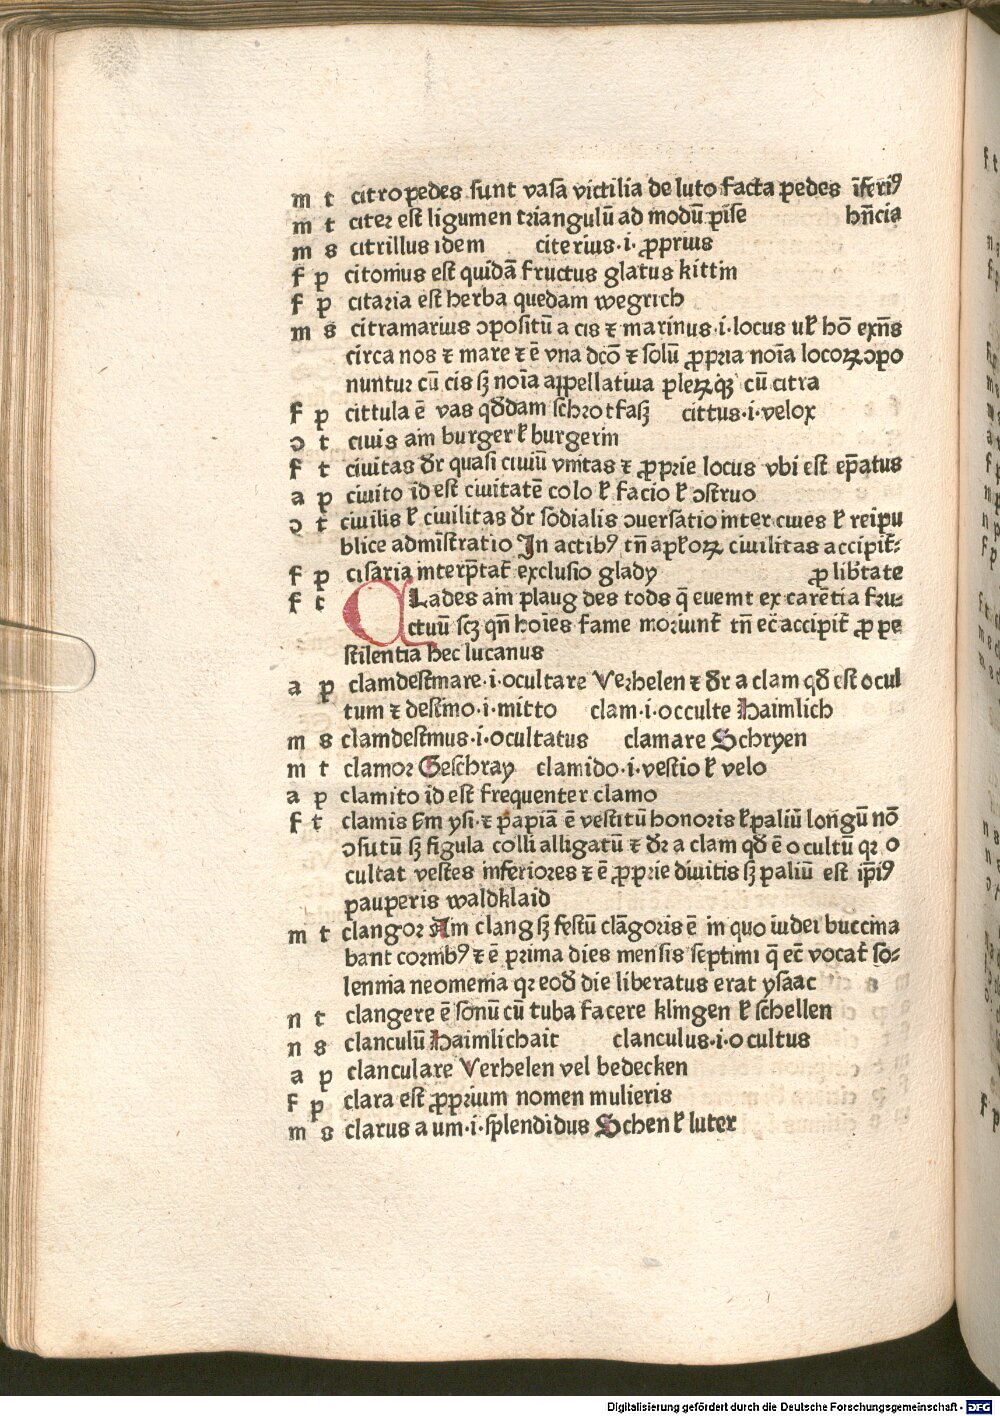 m t citropedes sunt vasa victilia de luto facta pedes īferiꝰ
m t citer est ligumen triangulū ad modū pise hn̄cia
m s citrillus idem citerius·i·ꝓprius
f p citonius est quidā fructus glatus kittin
f p citaria est herba quedam wegrich
m s citramarius ↄpositū a cis ⁊ marinus·i·locus uł hō exn̄s
circa nos ⁊ mare ⁊ ē vna dcō ⁊ solū ꝓpria noīa locoꝝ ↄpo
nuntur cū cis sꝫ noīa appellatiua pleꝝqꝫ cū citra
f p cittula ē vas qd̄dam schrotfasʒ cittus·i·velox
ↄ t ciuis aim burger ł burgerin
f t ciuitas dr̄ quasi ciuiū vnitas ⁊ ꝓprie locus vbi est ep̄atus
a p ciuito id est ciuitatē colo ł facio ł ↄstruo
ↄ t ciuilis ł ciuilitas dr̄ sodialis ↄuersatio inter ciues ł reipu
blice administratio In actibꝰ tn̄ apłoꝝ ciuilitas accipit̄:
f p cisaria interp̄tat̄ exclusio glady ꝓ lib̄tate
f t CLades aim plaug des tods q̄ euenit ex carētia fru:
ctuū scꝫ qn̄ hoīes fame moriunt̄ tn̄ ec̄ accipit̄ ꝓ pe
stilentia hec lucanus
a p clamdestinare·i·ocultare Verhelen ⁊ dr̄ a clam qd̄ est ocul
tum ⁊ destino·i·mitto clam·i·occulte Haimlich
m s clamdestinus·i·ocultatus clamare Schryen
m t clamor Geschray clamido·i·vestio ł velo
a p clamito id est frequenter clamo
f t clamis Em ysi·⁊ papiā ē vestitū honoris ł paliū longū nō
ↄsutū sꝫ figula colli alligatū ⁊ dr̄ a clam qd̄ ē ocultū qr o
cultat vestes inferiores ⁊ ē ꝓprie diuitis sꝫ paliū est ip̄iꝰ
pauperis waldklaid
m t clangor Aim clang sꝫ festū clāgoris ē in quo iudei buccina
bant cornibꝰ ⁊ ē prima dies mensis septimi q̄ ec̄ vocat̄ so:
lennia neomenia qr eod̄ die liberatus erat ysaac
n t clangere ē sonū cū tuba facere klingen ł schellen
n s clanculū Haimlichait clanculus·i·ocultus
a p clanculare Verhelen vel bedecken
f p clara est ꝓprium nomen mulieris
m s clarus a um·i·splendidus Schen ł luter
Digitalisierung gefördert durch die Deutsche Forschungsgemeinschaft - DFG